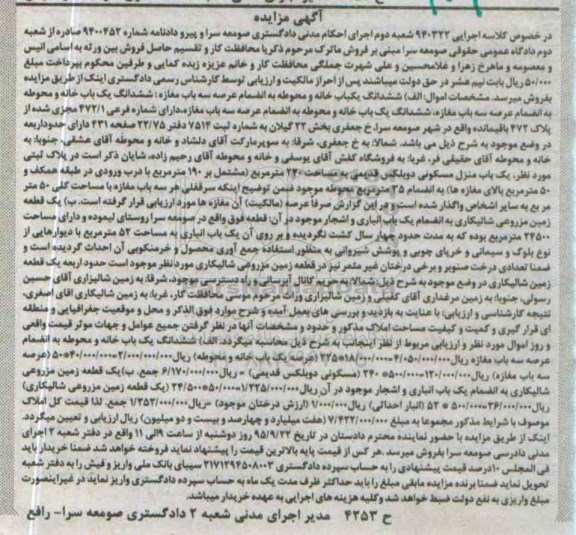 آگهی مزایده
در خصوص کلاسه اجرایی ۹۴۰۳۲۲ شعبه دوم اجرای احکام مدنی دادگستری صومعه سرا و پیرو دادنامه شماره ۹۴۰۰۴۵۲ صادره از شعبه
دوم دادگاه عمومی حقوقی صومعه سرا مبنی بر فروش ماترک مرحوم ذکریا محافظت کار و تقسیم حاصل فروش بین ورثه به اسامی انیس
و معصومه و ماهرخ زهرا و غلامحسین و علی شهرت جملگی محافظت کار و خانم عزیزه زیده کمایی و طرفین محکوم بپرداخت مبلغ
۵۰/۰۰۰ ریال بابت نیم عشر در حق دولت میباشند پس از احراز مالکیت و ارزیابی توسط کارشناس رسمی دادگستری اینک از طریق مزایده
بفروش میرسد. مشخصات اموال: الف) ششدانگ یکباب خانه و محوطه به انضمام عرصه سه باب مغازه: ششدانگ یک باب خانه و محوطه
به انضمام عرصه سه باب مغازه، ششدانگ یک باب خانه و محوطه به انضمام عرصه سه باب مغازه،دارای شماره فرعی ۴۷۲/۱ مجزی شده از
پلاک ۴۷۲ باقیمانده واقع در شهر صومعه سرا، خ جعفری بخش ۲۲ گیلان به شماره ثبت ۷۵۱۴ دفتر ۲۲/۷۵ صفحه ۴۳۱ دارای حدوداربعه
در وضع موجود به شرح ذیل می باشد. شمالا: به خ جعفری، شرقا: به سوپرمارکت آقای دلشاد و خانه و محوطه آقای مشقی، جنوبا: به
خانه و محوطه آقای حقیقی فر، غربا: به فروشگاه کفش آقای یوسفی و خانه و محوطه آقای رحیم زاده، شایان ذکر است در پلاک ثبتی
مورد نظر، یک باب منزل مسکونی دوبلکس قدیمی به مساحت ۲۴۰ مترمربع (مشتمل بر ۱۹۰ مترمربع با درب ورودی در طبقه همکف و
۵۰ مترمربع بالای مغازه ها) به انضمام ۳۵ مترمربع محوطه موجود ضمن توضیح اینکه سرقفلی هر سه باب مغازه با مساحت کلی ۵۰ متر
مر بع به سایر اشخاص واگذار شده است و در این گزارش صرفا عرصه (مالکیت) آن مغازه ها مورد ارزیابی قرار گرفته است. ب) یک قطعه
زمین مزروعی شالیکاری به انضمام یک باب انباری و اشجار موجود در آن: قطعه فوق واقع در صومعه سرا روستای لیموده و دارای مساحت
۲۴۵۰۰ مترمربع بوده که به مدت حدود چهار سال کشت نگردیده و بر روی آن یک باب انباری به مساحت ۵۲ مترمربع با دیوارهایی از
نوع بلوک و سیمانی و خرپای چوبی و پوشش شیروانی به منظور استفاده جمع آوری محصول و خرمنکوبی آن احداث گردیده است و
ضمنا تعدادی درخت صنوبر و برخی درختان غیر مثمر نیز در قطعه زمین مزروعی شالیکاری مورد نظر موجود است حدود اربعه یک قطعه
زمین شالیکاری در وضع موجود به شرح ذیل: شمالا: به حریم کانال آبرسانی و دسترسی موجود، شرقا: به زمین شالیزاری آقای حسین
رسولی، جنوبا: به زمین مرغداری آقای کفیلی و زمین شالیزاری وراث مرحوم موسی محافظت کار، غربا: به زمین شالیکاری آقای اصغری،
نتیجه کارشناسی و ارزیابی: با عنایت به بازدید و بررسی های بعمل آمده و شرح موارد فوق الذکر و محل و موقعیت جغرافیایی و منطقه
ای قرار گیری و کمیت و کیفیت مساحت املاک مذکور و حدود و مشخصات آنها در نظر گرفتن جمیع عوامل و جهات موثر قیمت واقعی
و روز اموال مورد نظر و ارزیابی مربوط از نظر اینجانب به شرح ذیل محاسبه میگردد. الف) ششدانگ یک باب خانه و محوطه به انضمام
عرصه سه باب مغازه ریال ۴/۰۵۰/۰۰۰/۰۰۰=۱۸/۰۰۰/۰۰۰*۲۲۵ (عرصه یک باب خانه و محوطه) ریال۲/۰۰۰/۰۰۰/۰۰۰=۴۰/۰۰۰/۰۰۰*۵۰ (عرصه
سه باب مغازه) ریال۱۲۰/۰۰۰/۰۰۰=۵۰۰/۰۰۰* ۲۴۰ (مسکونی دوبلکس قدیمی) = ریال۶/۱۷۰/۰۰۰/۰۰۰ جمع. ب)یک قطعه زمین مزروعی
شالیکاری به انضمام یک باب انباری و اشجار موجود در آن ریال۱/۲۲۵/۰۰۰/۰۰۰=۵۰/۰۰۰*۲۴/۵۰۰ (یک قطعه زمین مزروعی شالیکاری)
ریال۲۶/۰۰۰/۰۰۰=۵۰۰/۰۰۰ * ۵۲ (انبار احداثی) ریال ۱/۰۰۰/۰۰۰ (ارزش درختان موجود) =ریال۱/۲۵۲/۰۰۰/۰۰۰ جمع. لذا قیمت کل املاک
موصوف با شرایط مذکور مجموعا به مبلغ ۷/۴۲۲/۰۰۰/۰۰۰ (هفت میلیارد و چهارصد و بیست و دو میلیون) ریال ارزیابی و تعیین میگردد.
اینک از طریق مزایده با حضور نماینده محترم دادستان در تاریخ ۹۵/۹/۲۲ روز دوشنبه از ساعت ۹الی ۱۱ واقع در دفتر شعبه ۲ اجرای
مدنی دادرسی صومعه سرا بفروش میرسد. هر کس از قیمت پایه بالاترین قیمت را پیشنهاد نماید فروخته خواهد شد ضمنا خریدار باید
فی المجلس ۱۰درصد قیمت پیشنهادی را به حساب سپرده دادگستری ۲۱۷۱۲۹۴۵۰۸۰۰۳ سیبای بانک ملی واریز و فیش را به دفتر شعبه
تحویل نماید ضمنا برنده مزایده مابقی مبلغ را باید حداکثر ظرف مدت یک ماه به حساب سپرده دادگستری واریز نماید در غیراینصورت
مبلغ واریزی به نفع دولت ضبط خواهد شد وکلیه هزینه های اجرایی به عهده خریدار میباشد.
ح ۴۲۵۳ مدیر اجرای مدنی شعبه ۲ دادگستری صومعه سرا- رافع